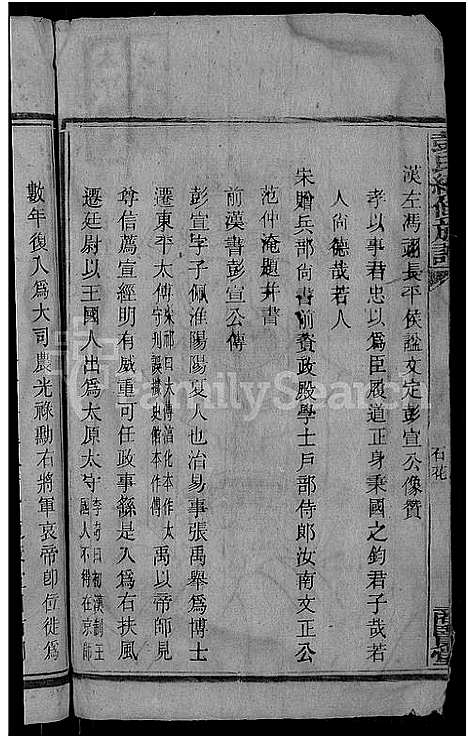 彭氏續修族譜
石花
漢左馮翊長平侯諡文定彭宣公像贊
孝以事君忠以爲臣履道正身秉國之鈞君子哉若
人尚德哉若人
宋贈兵部尚書前資政殿學士戶部侍郎汝南文正公
范仲淹題幷書
前漢書彭宣公傳
彭宣字子佩淮陽陽夏人也治易事張禹舉爲博士
遷東平太傅宋祁曰太傅淳化本作太守刊誤據史館本作傅禹以帝師見
尊信薦宣經明有威重可任政事繇是入爲右扶風
遷廷尉以王國人出爲太原太守李奇曰初漢制王國人不得在京師
數年復入爲大司農光祿勳右將軍哀帝卽位徙爲
FamilySearch